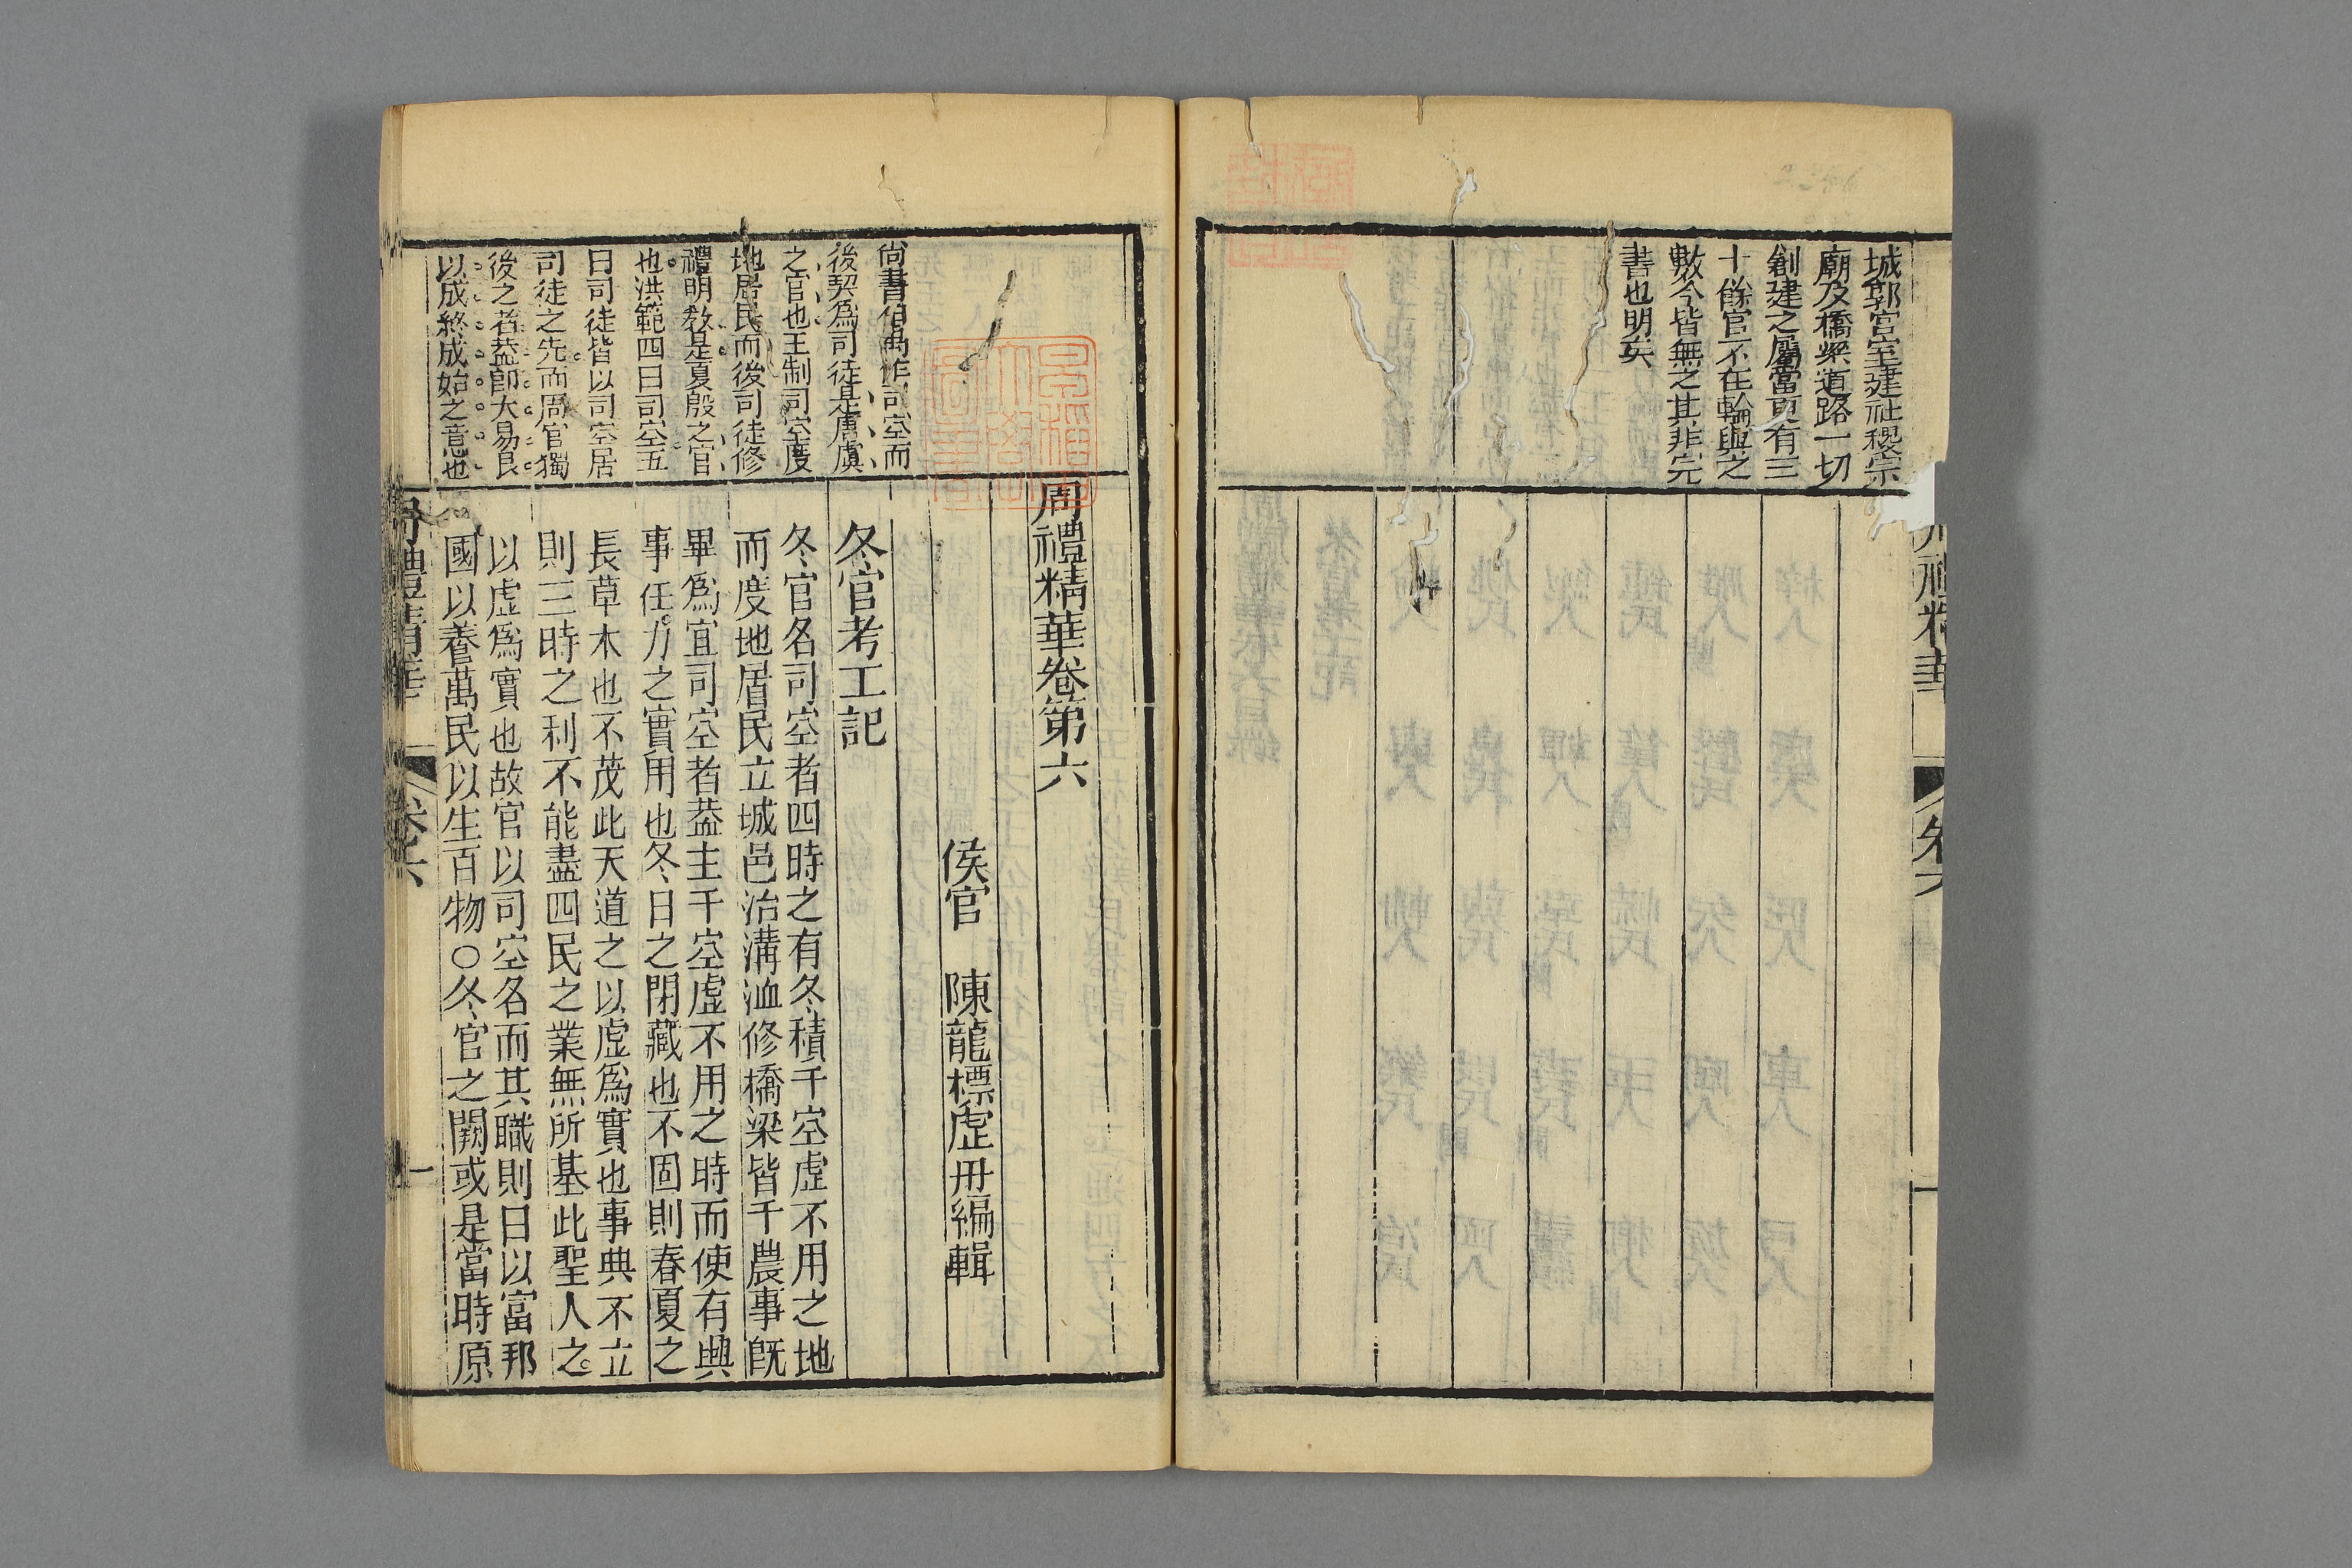 城郭宮室建社稷宗
廟及橋梁道路一切
創建之屬當更有三
十餘官不在輪輿之
數今皆無之其非完
書也明矣
周禮精華卷第六
侯官 陳龍標虛舟編輯
冬官考工記
尚書伯禹作司空而
後契為司徒是唐虞
之官也王制司空度
地居民而後司徒修
禮明教是夏殷之官
也洪範四曰司空五
曰司徒皆以司空居
司徒之先而周官獨
後之者葢卽大易艮
以成終成始之意也
冬官名司空者四時之有冬積于空虛不用之地
而度地居民立城邑治溝洫修橋梁皆于農事既
畢為宜司空者葢主于空虛不用之時而使有興
事任力之實用也冬日之閉藏也不固則春夏之
長草木也不茂此天道之以虛為實也事典不立
則三時之利不能盡四民之業無所基此聖人之
以虛為實也故官以司空名而其職則曰以富邦
國以養萬民以生百物○冬官之闕或是當時原
周禮精華 卷六 一